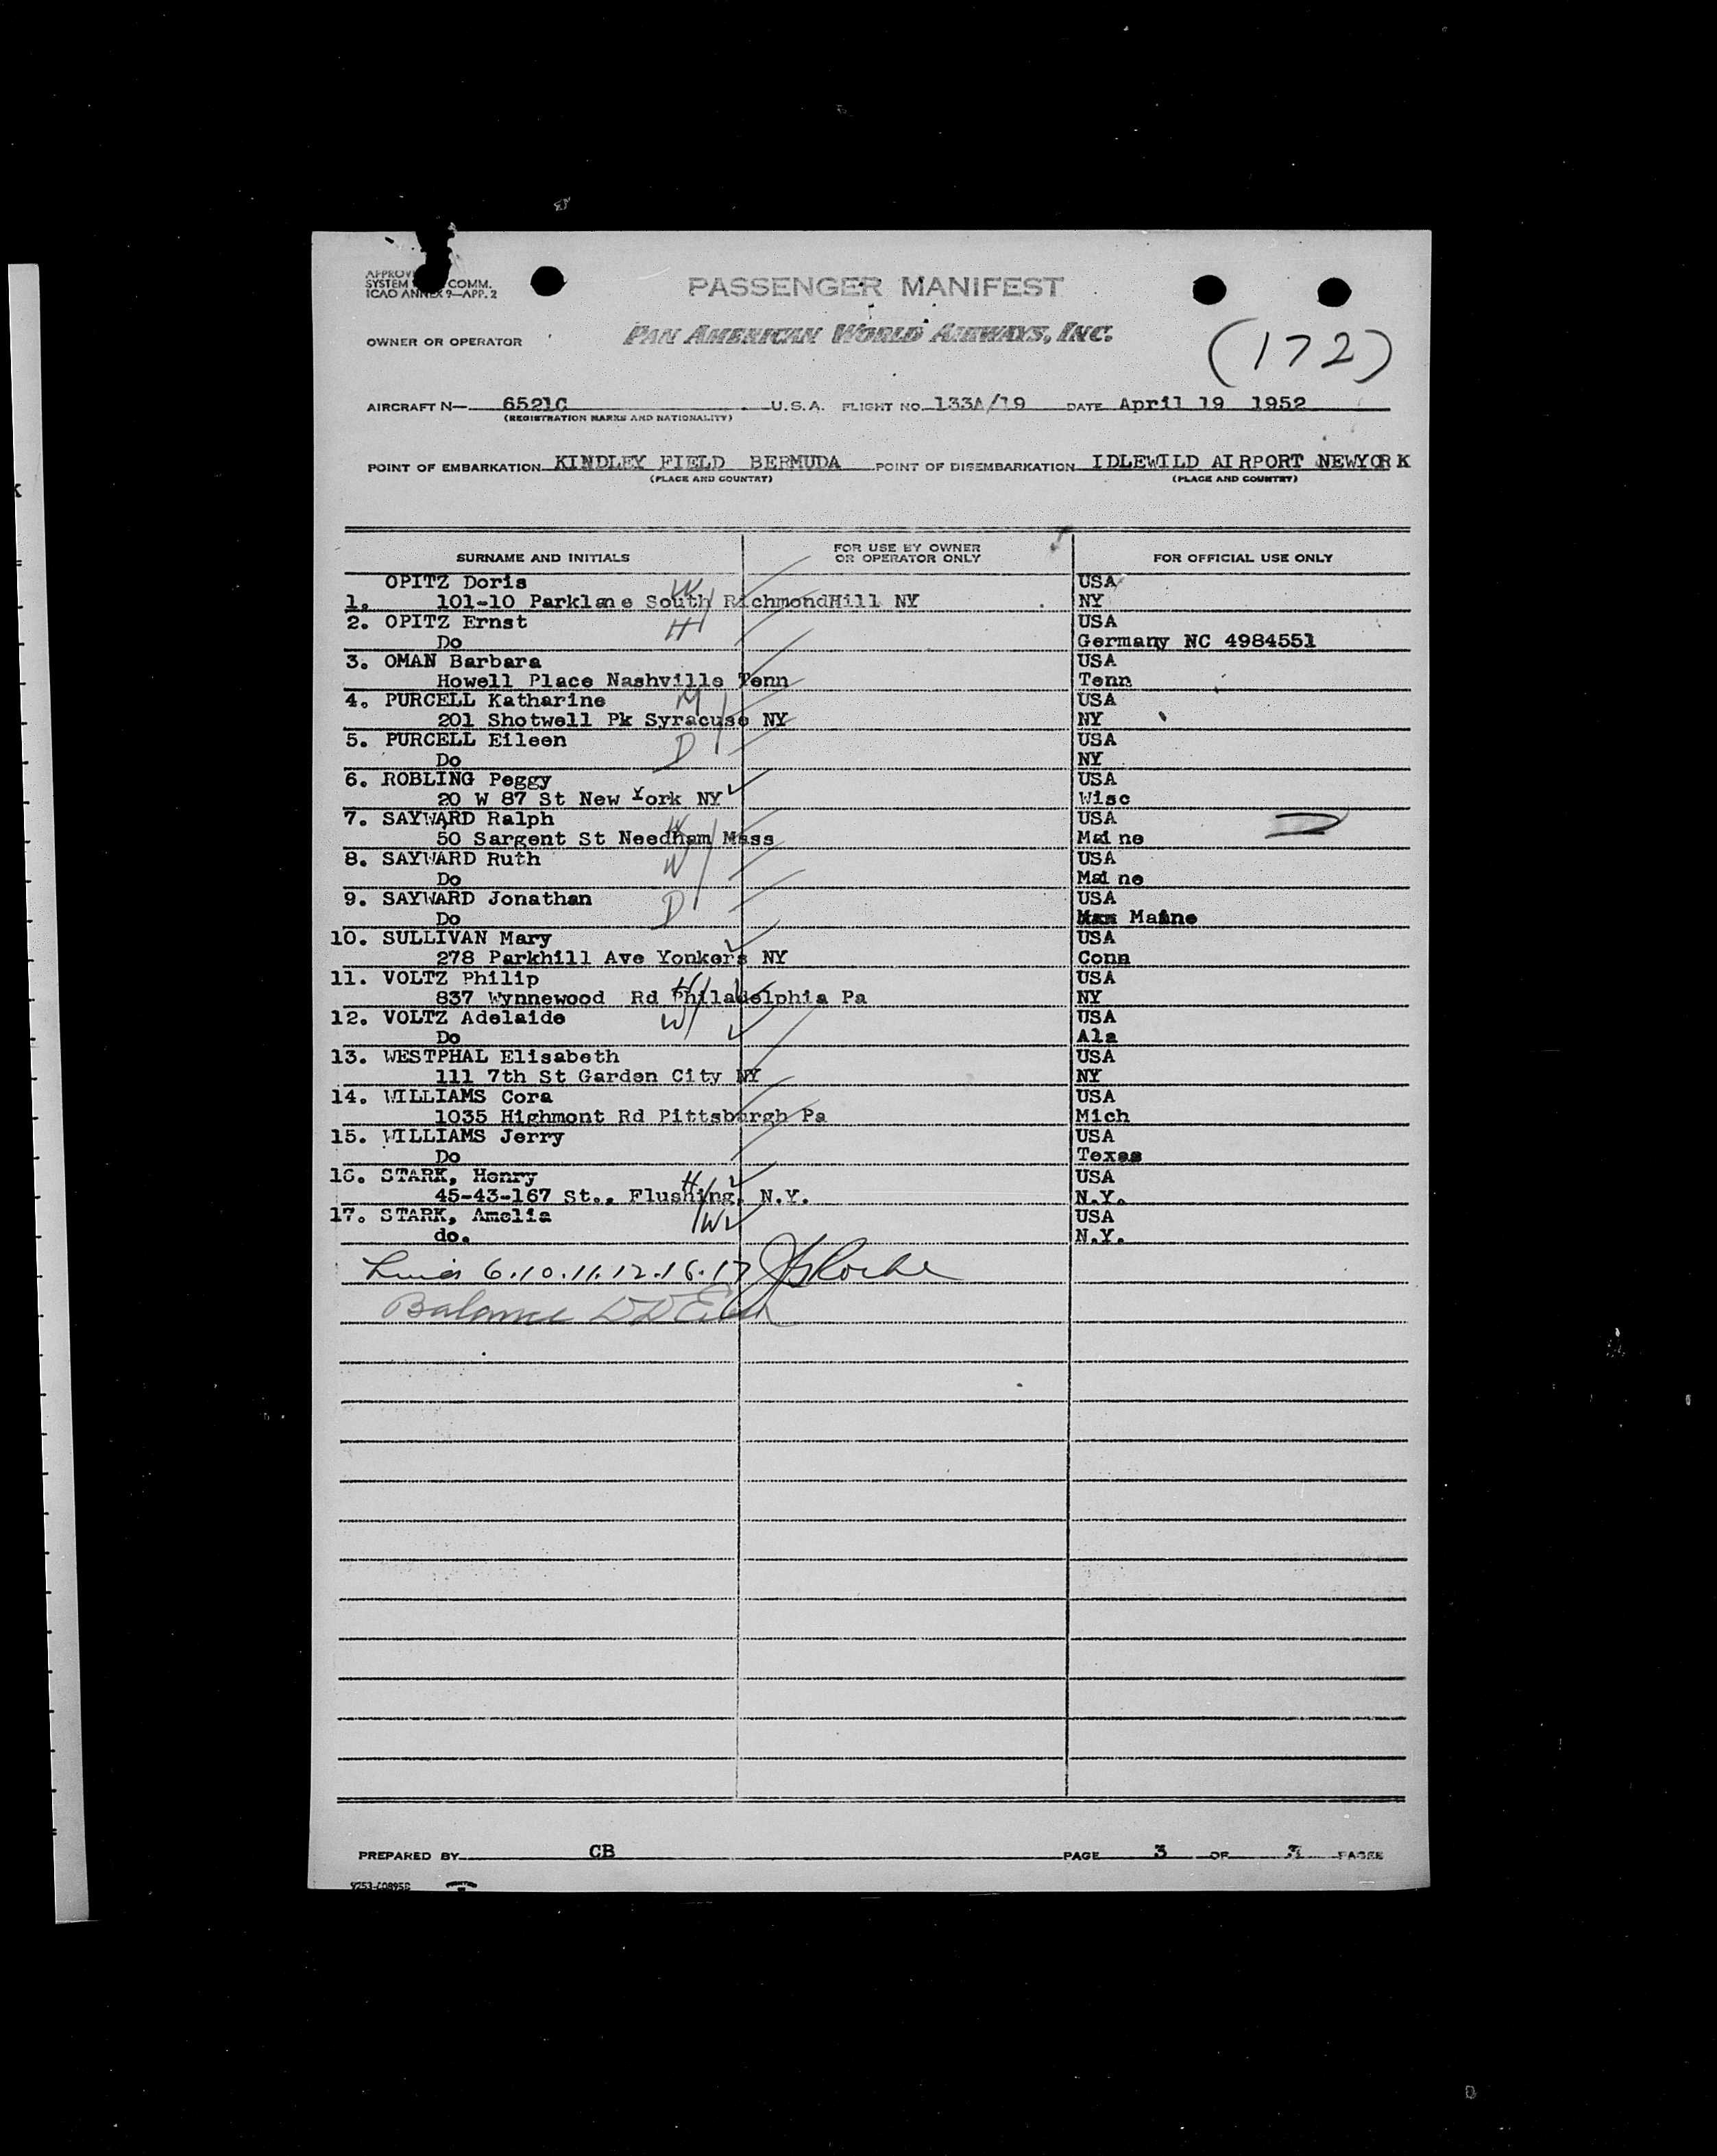 APPROV
SYSTEM COMM.
ICAO ANNEX 9—APP. 2
PASSENGER MANIFEST
OWNER OR OPERATOR PAN AMERICAN WORLD AIRWAYS, INC.
(172)
AIRCRAFT N— 6521C U.S.A. FLIGHT NO. 133A/19 DATE April 19 1952
(REGISTRATION MARKS AND NATIONALITY)
POINT OF EMBARKATION KINDLEY FIELD BERMUDA POINT OF DISEMBARKATION IDLEWILD AIRPORT NEWYORK
(PLACE AND COUNTRY) (PLACE AND COUNTRY)
SURNAME AND INITIALS FOR USE BY OWNER OR OPERATOR ONLY FOR OFFICIAL USE ONLY
OPITZ Doris W USA
1. 101-10 Parklane South RichmondHill NY NY
2. OPITZ Ernst H USA
Do Germany NC 4984551
3. OMAN Barbara USA
Howell Place Nashville Tenn Tenn
4. PURCELL Katharine M USA
201 Shotwell Pk Syracuse NY NY
5. PURCELL Eileen D USA
Do NY
6. ROBLING Peggy USA
20 W 87 St New York NY Wisc
7. SAYWARD Ralph H USA
50 Sargent St Needham Mass Maine
8. SAYWARD Ruth W USA
Do Maine
9. SAYWARD Jonathan D USA
Do Maine
10. SULLIVAN Mary USA
278 Parkhill Ave Yonkers NY Conn
11. VOLTZ Philip H USA
837 Wynnewood Rd Philadelphia Pa NY
12. VOLTZ Adelaide W USA
Do Ala
13. WESTPHAL Elisabeth USA
111 7th St Garden City NY NY
14. WILLIAMS Cora USA
1035 Highmont Rd Pittsburgh Pa Mich
15. WILLIAMS Jerry USA
Do Texas
16. STARK, Henry H USA
45-43-167 St., Flushing, N.Y. N.Y.
17. STARK, Amelia W USA
do. N.Y.
6.10.11.12.16.17
Balance
PREPARED BY CB PAGE 3 OF 3 PAGES